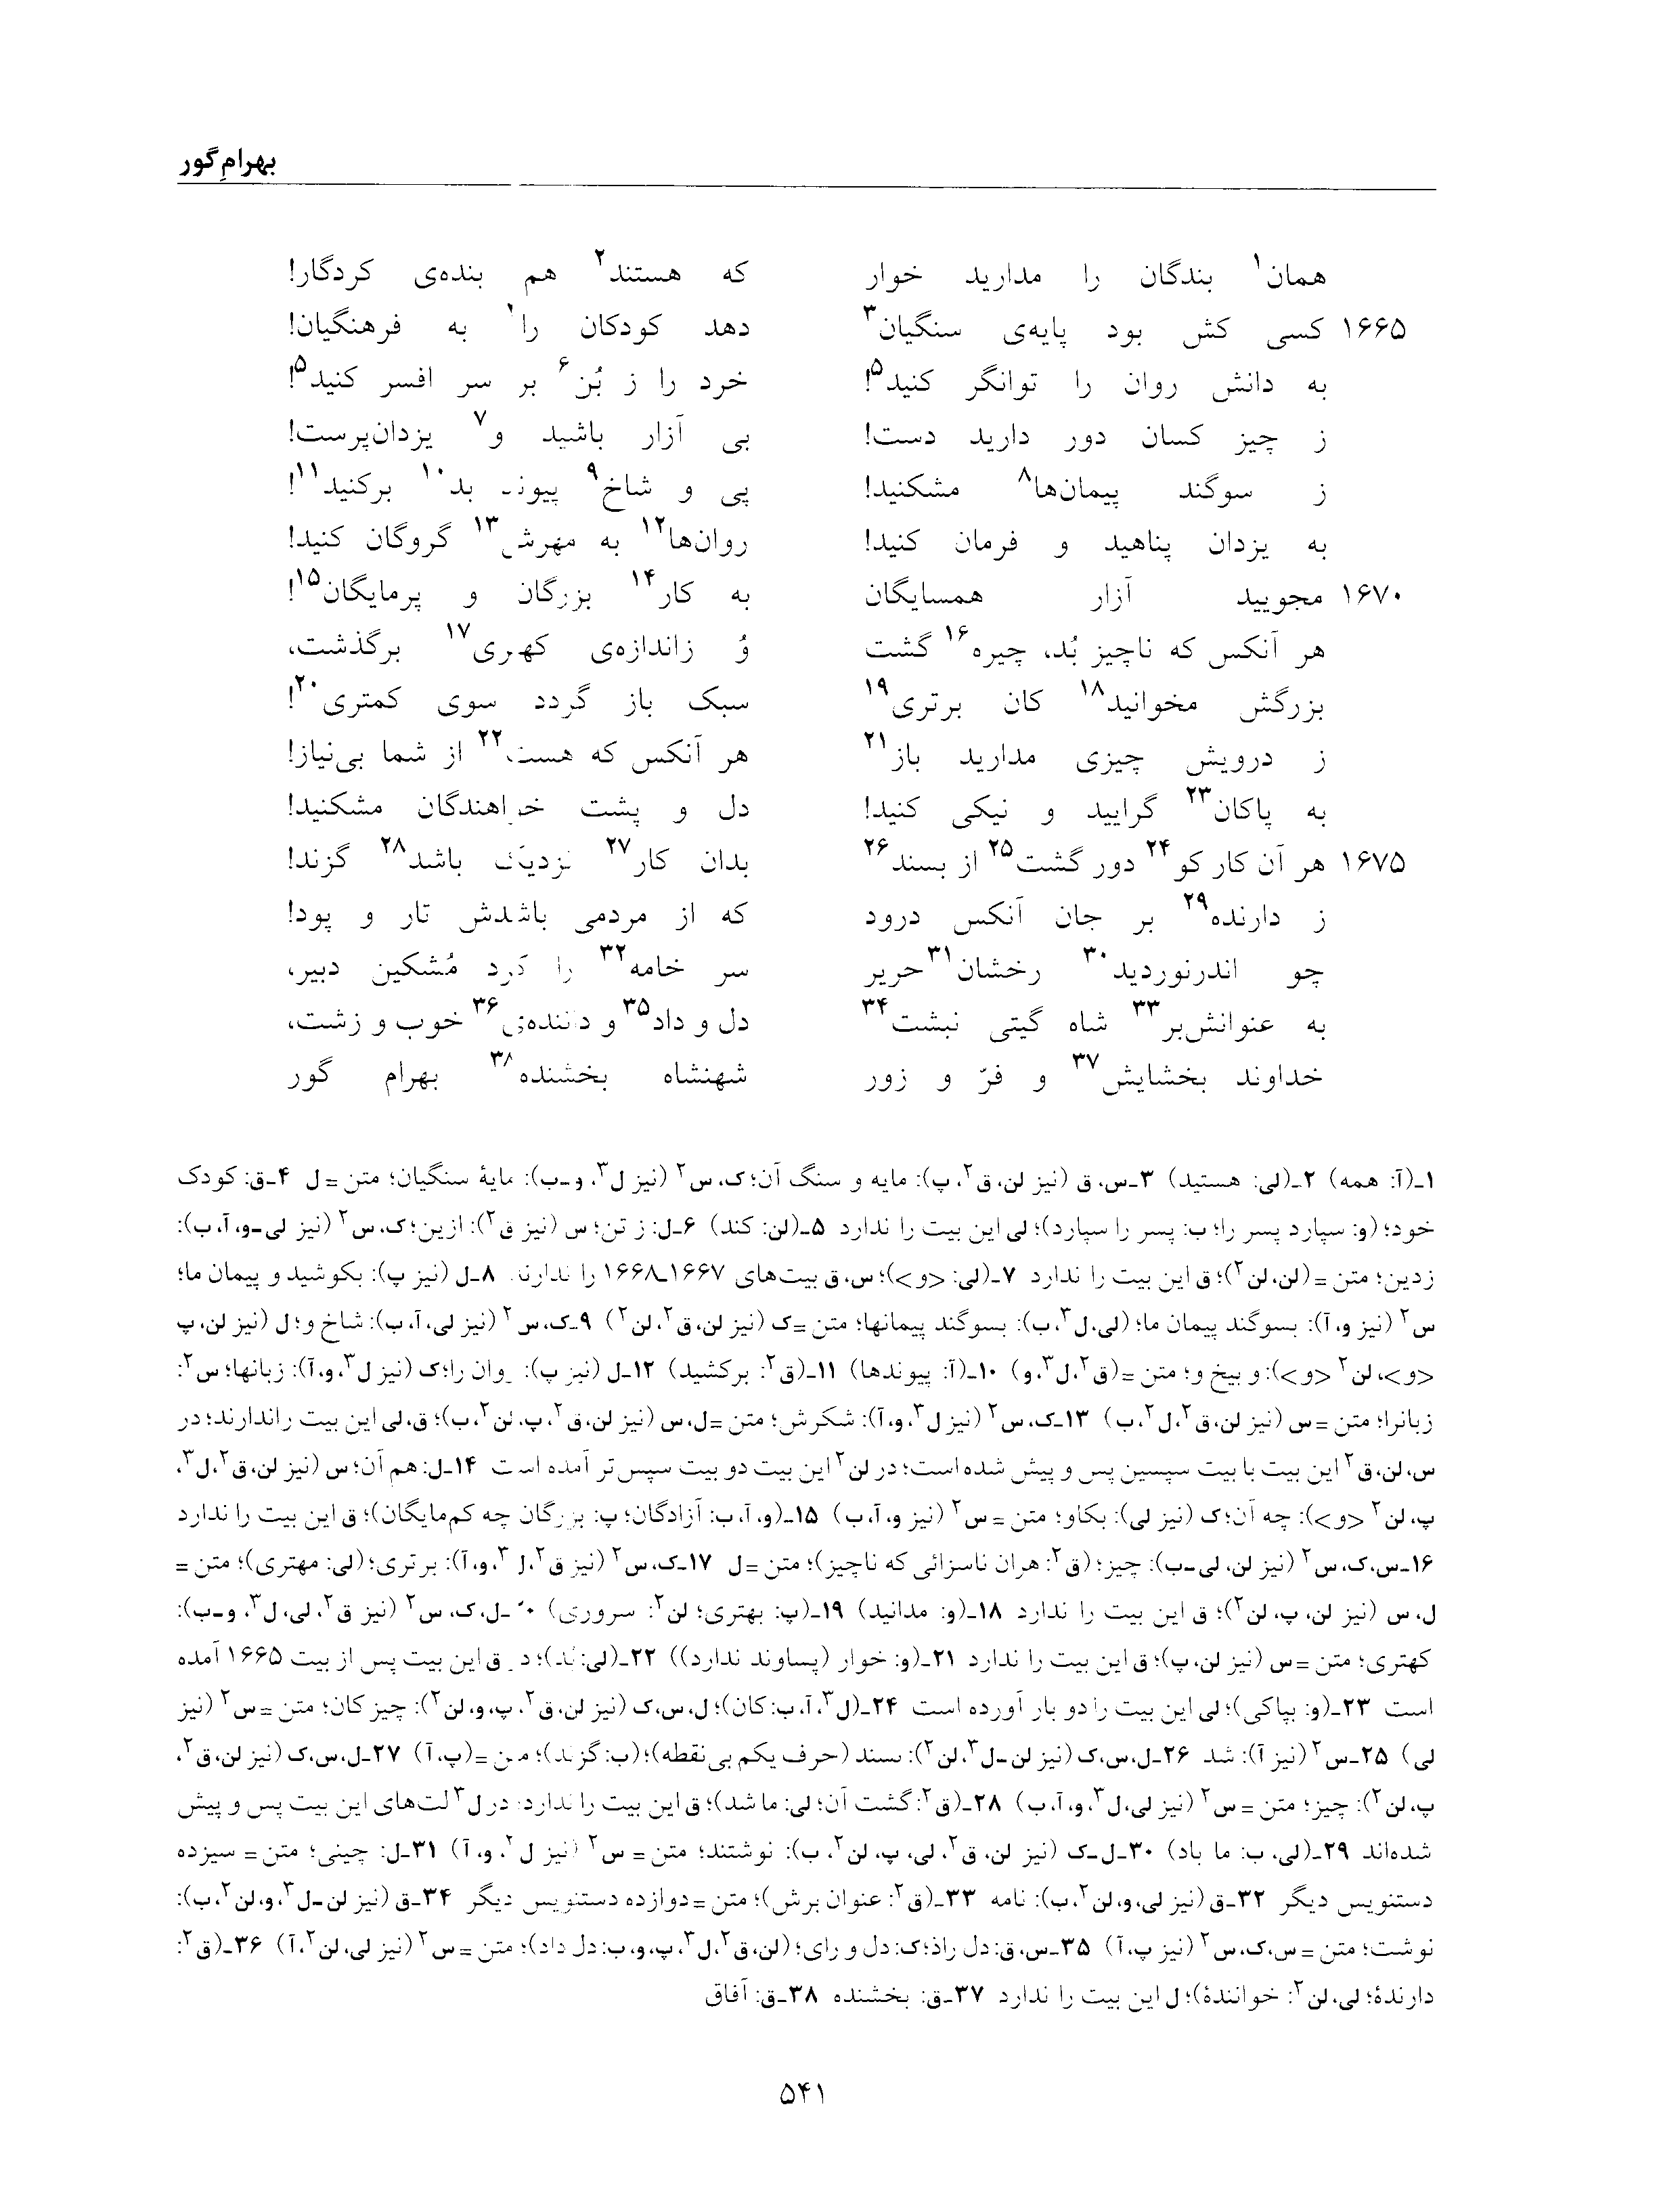 بهرامِ گور
همان۱ بندگان را مدارید خوار که هستند۲ هم بنده‌ی کردگار!
۱۶۶۵ کسی کش بود پایه‌ی سنگیان۳ دهد کودکان را به فرهنگیان!
به دانش روان را توانگر کنید۵! خرد را ز بُن۶ بر سر افسر کنید۵!
ز چیز کسان دور دارید دست! بی آزار باشید و۷ یزدان‌پرست!
ز سوگند پیمان‌ها۸ مشکنید! پی و شاخ۹ پیوند بد۱۰ برکنید۱۱!
به یزدان پناهید و فرمان کنید! روان‌ها۱۲ به مهرش۱۳ گروگان کنید!
۱۶۷۰ مجویید آزار همسایگان به کار۱۴ بزرگان و پرمایگان۱۵!
هر آنکس که ناچیز بُد، چیره۱۶ گشت وُ زاندازه‌ی کهتری۱۷ برگذشت،
بزرگش مخوانید۱۸ کان برتری۱۹ سبک باز گردد سوی کمتری۲۰!
ز درویش چیزی مدارید باز۲۱ هر آنکس که هست۲۲ از شما بی‌نیاز!
به پاکان۲۳ گرایید و نیکی کنید! دل و پشت خواهندگان مشکنید!
۱۶۷۵ هر آن کار کو۲۴ دور گشت۲۵ از بسند۲۶ بدان کار۲۷ نزدیک باشد۲۸ گزند!
ز دارنده۲۹ بر جان آنکس درود که از مردمی باشدش تار و پود!
چو اندرنوردید۳۰ رخشان۳۱ حریر سر خامه۳۲ را کرد مُشکین دبیر،
به عنوانش‌بر۳۳ شاه گیتی نبشت۳۴ دل و داد۳۵ و داننده‌ی۳۶ خوب و زشت،
خداوند بخشایش۳۷ و فرّ و زور شهنشاه بخشنده۳۸ بهرام گور
۱ـ(آ: همه) ۲ـ(لی: هستید) ۳ـس، ق (نیز لن، ق۲، پ): مایه و سنگ آن؛ ک، س۲ (نیز ل۳، و ـ ب): مایهٔ سنگیان؛ متن = ل ۴ـق: کودک
خود؛ (و: سپارد پسر را؛ ب: پسر را سپارد)؛ لی این بیت را ندارد ۵ـ(لن: کند) ۶ـل: ز تن؛ س (نیز ق۲): ازین؛ ک، س۲ (نیز لی ـ و، آ، ب):
زدین؛ متن = (لن، لن۲)؛ ق این بیت را ندارد ۷ـ(لی: <و>)؛ س، ق بیت‌های ۱۶۶۷ـ۱۶۶۸ را ندارند ۸ـل (نیز پ): بکوشید و پیمان ما؛
س۲ (نیز و، آ): بسوگند پیمان ما؛ (لی، ل۳، ب): بسوگند پیمانها؛ متن = ک (نیز لن، ق۲، لن۲) ۹ـک، س۲ (نیز لی، آ، ب): شاخ و؛ ل (نیز لن، پ
<و>، لن۲ <و>): و بیخ و؛ متن = (ق۲، ل۳، و) ۱۰ـ(آ: پیوندها) ۱۱ـ(ق۲: برکشید) ۱۲ـل (نیز پ): روان را؛ ک (نیز ل۳، و، آ): زبانها؛ س۲:
زبانرا؛ متن = س (نیز لن، ق۲، ل۲، ب) ۱۳ـک، س۲ (نیز ل۳، و، آ): شکرش؛ متن = ل، س (نیز لن، ق۲، پ، لن۲، ب)؛ ق، لی این بیت راندارند؛ در
س، لن، ق۲ این بیت با بیت سپسین پس و پیش شده است؛ در لن۲ این بیت دو بیت سپس‌تر آمده است ۱۴ـل: هم آن؛ س (نیز لن، ق۲، ل۳،
پ، لن۲ <و>): چه آن؛ ک (نیز لی): بکاو؛ متن = س۲ (نیز و، آ، ب) ۱۵ـ(و، آ، ب: آزادگان؛ پ: بزرگان چه کم‌مایگان)؛ ق این بیت را ندارد
۱۶ـس، ک، س۲ (نیز لن، لی ـ ب): چیز؛ (ق۲: هران ناسزائی که ناچیز)؛ متن = ل ۱۷ـک، س۲ (نیز ق۲، ل۳، و، آ): برتری؛ (لی: مهتری)؛ متن =
ل، س (نیز لن، پ، لن۲)؛ ق این بیت را ندارد ۱۸ـ(و: مدانید) ۱۹ـ(پ: بهتری؛ لن۲: سروری) ۲۰ـل، ک، س۲ (نیز ق۲، لی، ل۳، و ـ ب):
کهتری؛ متن = س (نیز لن، پ)؛ ق این بیت را ندارد ۲۱ـ(و: خوار (پساوند ندارد)) ۲۲ـ(لی: بد)؛ در ق این بیت پس از بیت ۱۶۶۵ آمده
است ۲۳ـ(و: بپاکی)؛ لی این بیت را دو بار آورده است ۲۴ـ(ل۳، آ، ب: کان)؛ ل، س، ک (نیز لن، ق۲، پ، و، لن۲): چیز کان؛ متن = س۲ (نیز
لی) ۲۵ـس۲ (نیز آ): شد ۲۶ـل، س، ک (نیز لن ـ ل۳، لن۲): ٮسند (حرف یکم بی‌نقطه)؛ (ب: گزند)؛ متن = (پ، آ) ۲۷ـل، س، ک (نیز لن، ق۲،
پ، لن۲): چیز؛ متن = س۲ (نیز لی، ل۳، و، آ، ب) ۲۸ـ(ق۲: گشت آن؛ لی: ما شد)؛ ق این بیت را ندارد؛ در ل۳ لت‌های این بیت پس و پیش
شده‌اند ۲۹ـ(لی، ب: ما باد) ۳۰ـل ـ ک (نیز لن، ق۲، لی، پ، لن۲، ب): نوشتند؛ متن = س۲ (نیز ل۳، و، آ) ۳۱ـل: چینی؛ متن = سیزده
دستنویس دیگر ۳۲ـق (نیز لی، و، لن۲، ب): نامه ۳۳ـ(ق۲: عنوان برش)؛ متن = دوازده دستنویس دیگر ۳۴ـق (نیز لن ـ ل۳، و، لن۲، ب):
نوشت؛ متن = س، ک، س۲ (نیز پ، آ) ۳۵ـس، ق: دل راذ؛ ک: دل و رای؛ (لن، ق۲، ل۳، پ، و، ب: دل داد)؛ متن = س۲ (نیز لی، لن۲، آ) ۳۶ـ(ق۲:
دارندهٔ؛ لی، لن۲: خوانندهٔ)؛ ل این بیت را ندارد ۳۷ـق: بخشنده ۳۸ـق: آفاق
۵۴۱